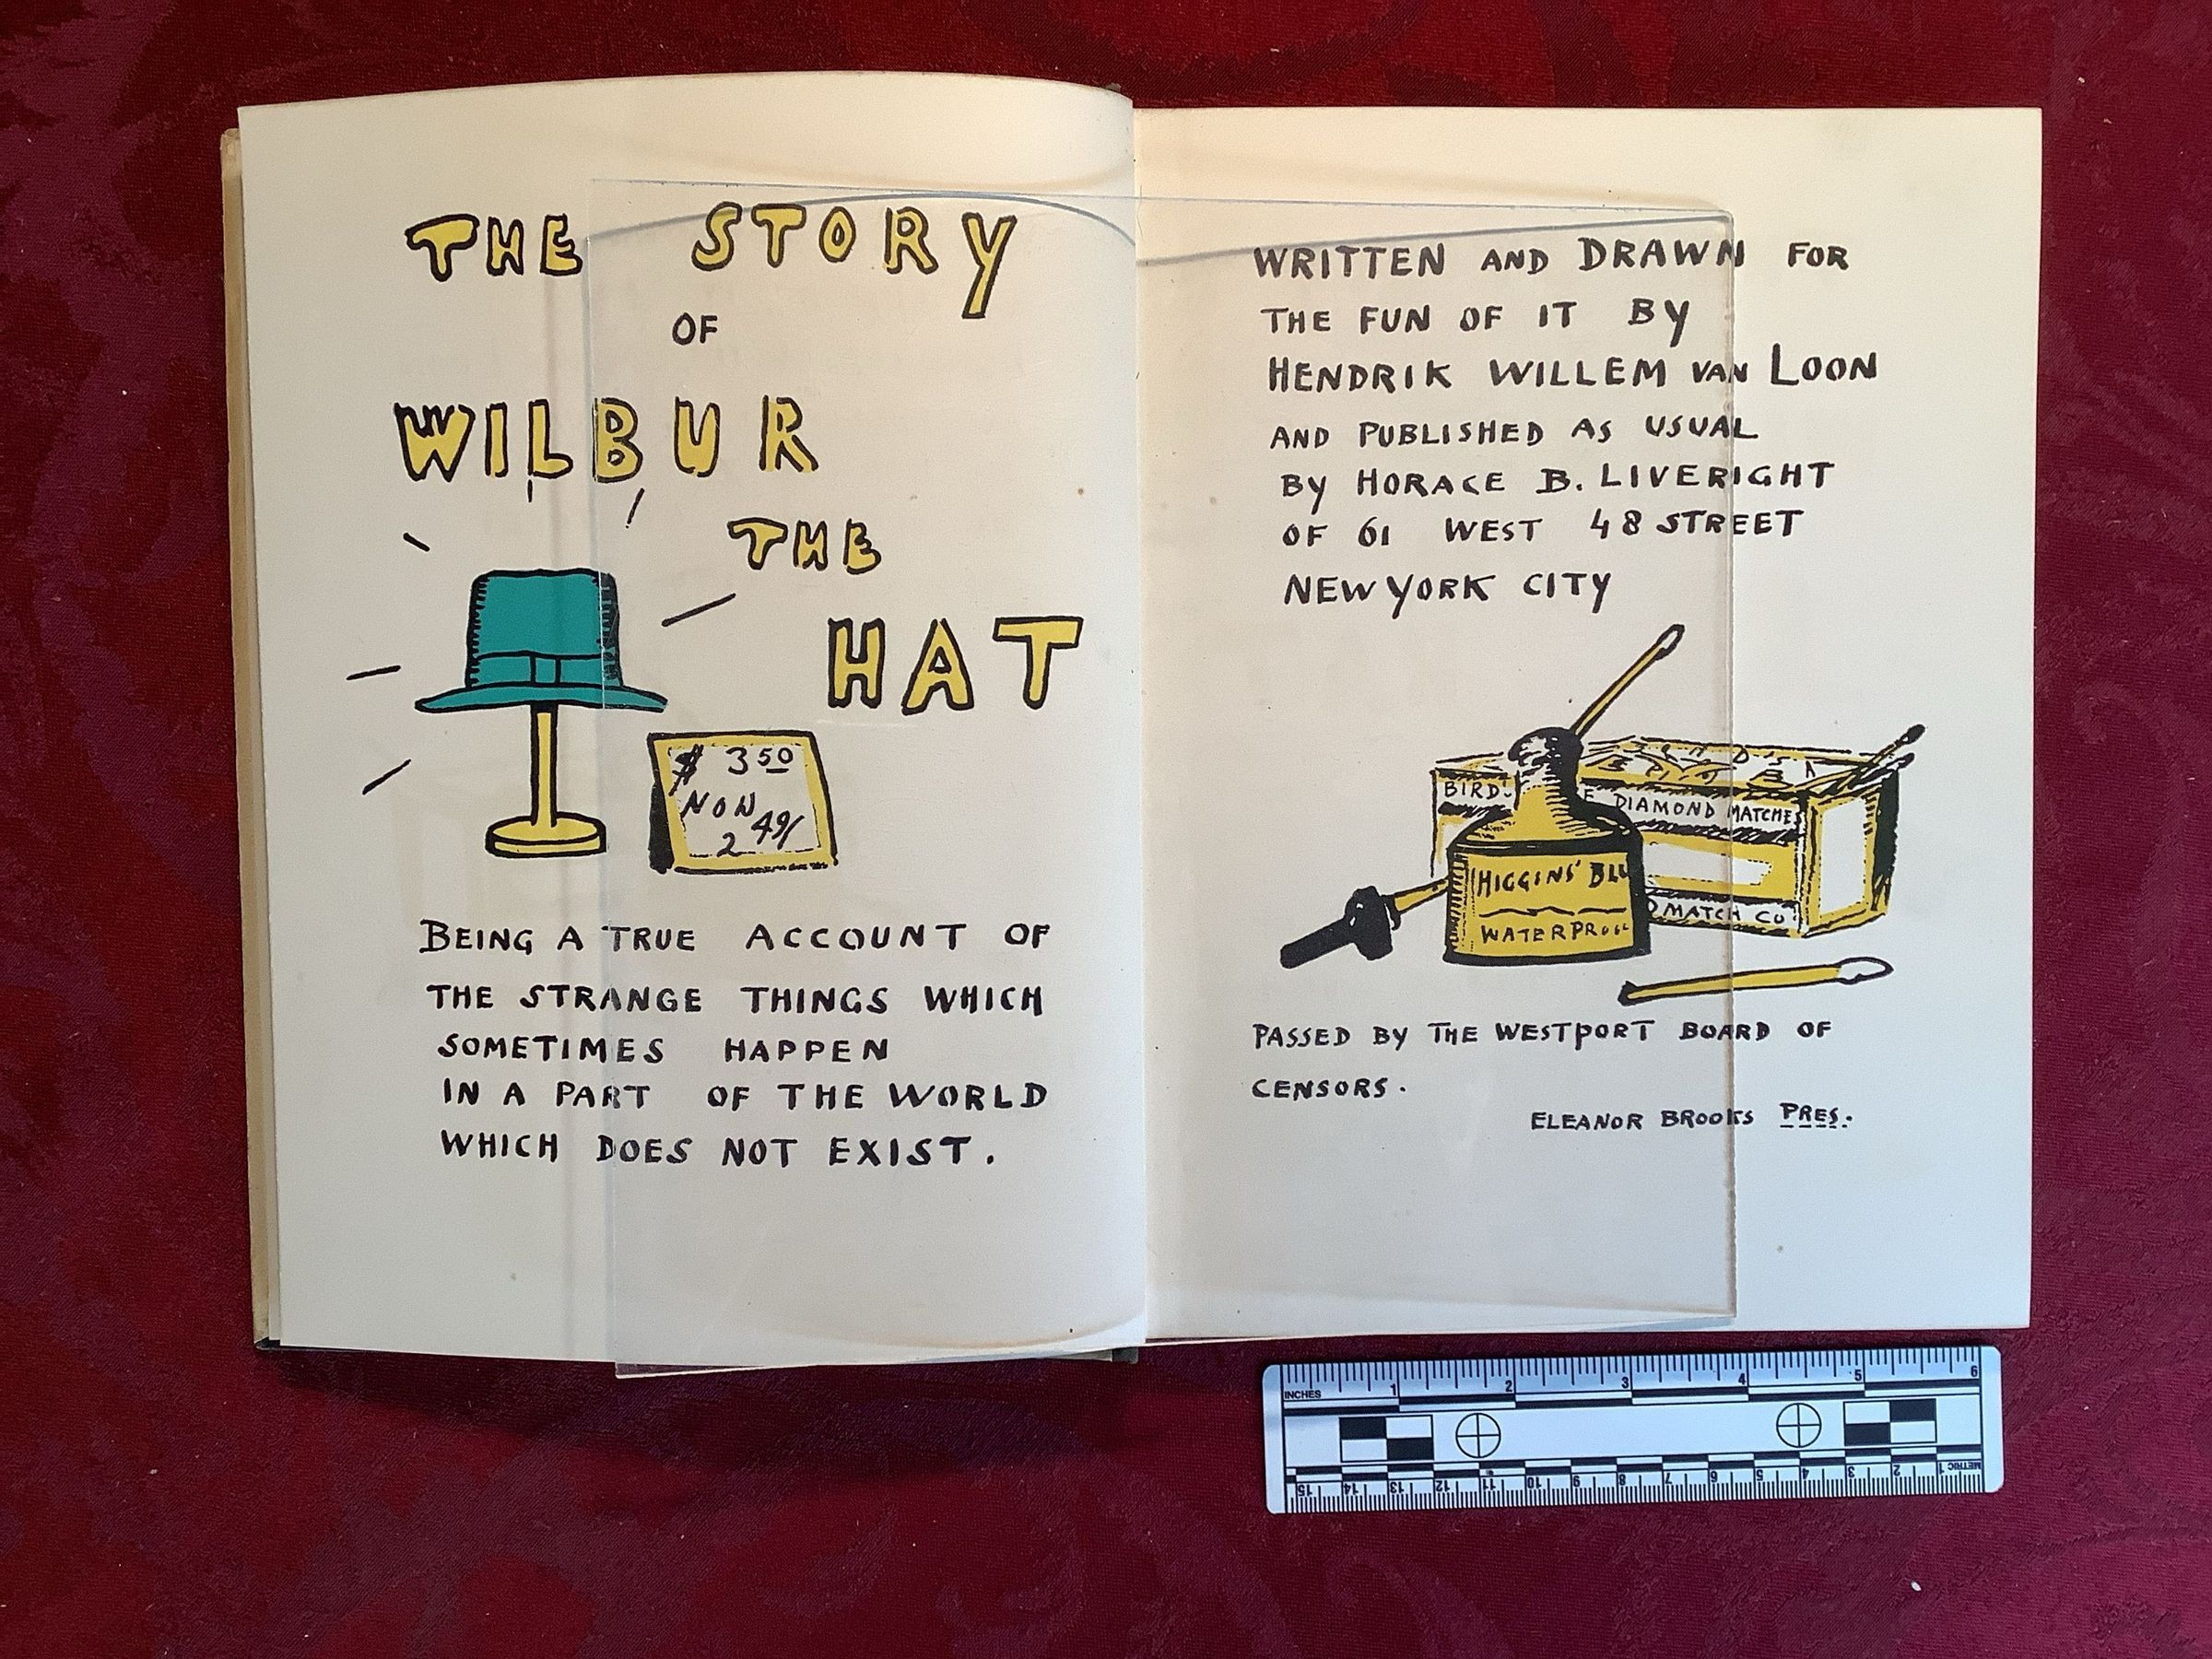 THE STORY
OF
WILBUR
THE
HAT
$ 3 50
NOW
2 49/
BEING A TRUE ACCOUNT OF
THE STRANGE THINGS WHICH
SOMETIMES HAPPEN
IN A PART OF THE WORLD
WHICH DOES NOT EXIST.
WRITTEN AND DRAWN FOR
THE FUN OF IT BY
HENDRIK WILLEM VAN LOON
AND PUBLISHED AS USUAL
BY HORACE B. LIVERIGHT
OF 61 WEST 48 STREET
NEW YORK CITY
BIRD'S
DIAMOND MATCHES
HIGGINS' BL
MATCH CO
WATERPROO
PASSED BY THE WESTPORT BOARD OF
CENSORS.
ELEANOR BROOKS PRES.
INCHES 1 2 3 4 5 6
15 14 13 12 11 10 9 8 7 6 5 4 3 2 1 METRIC